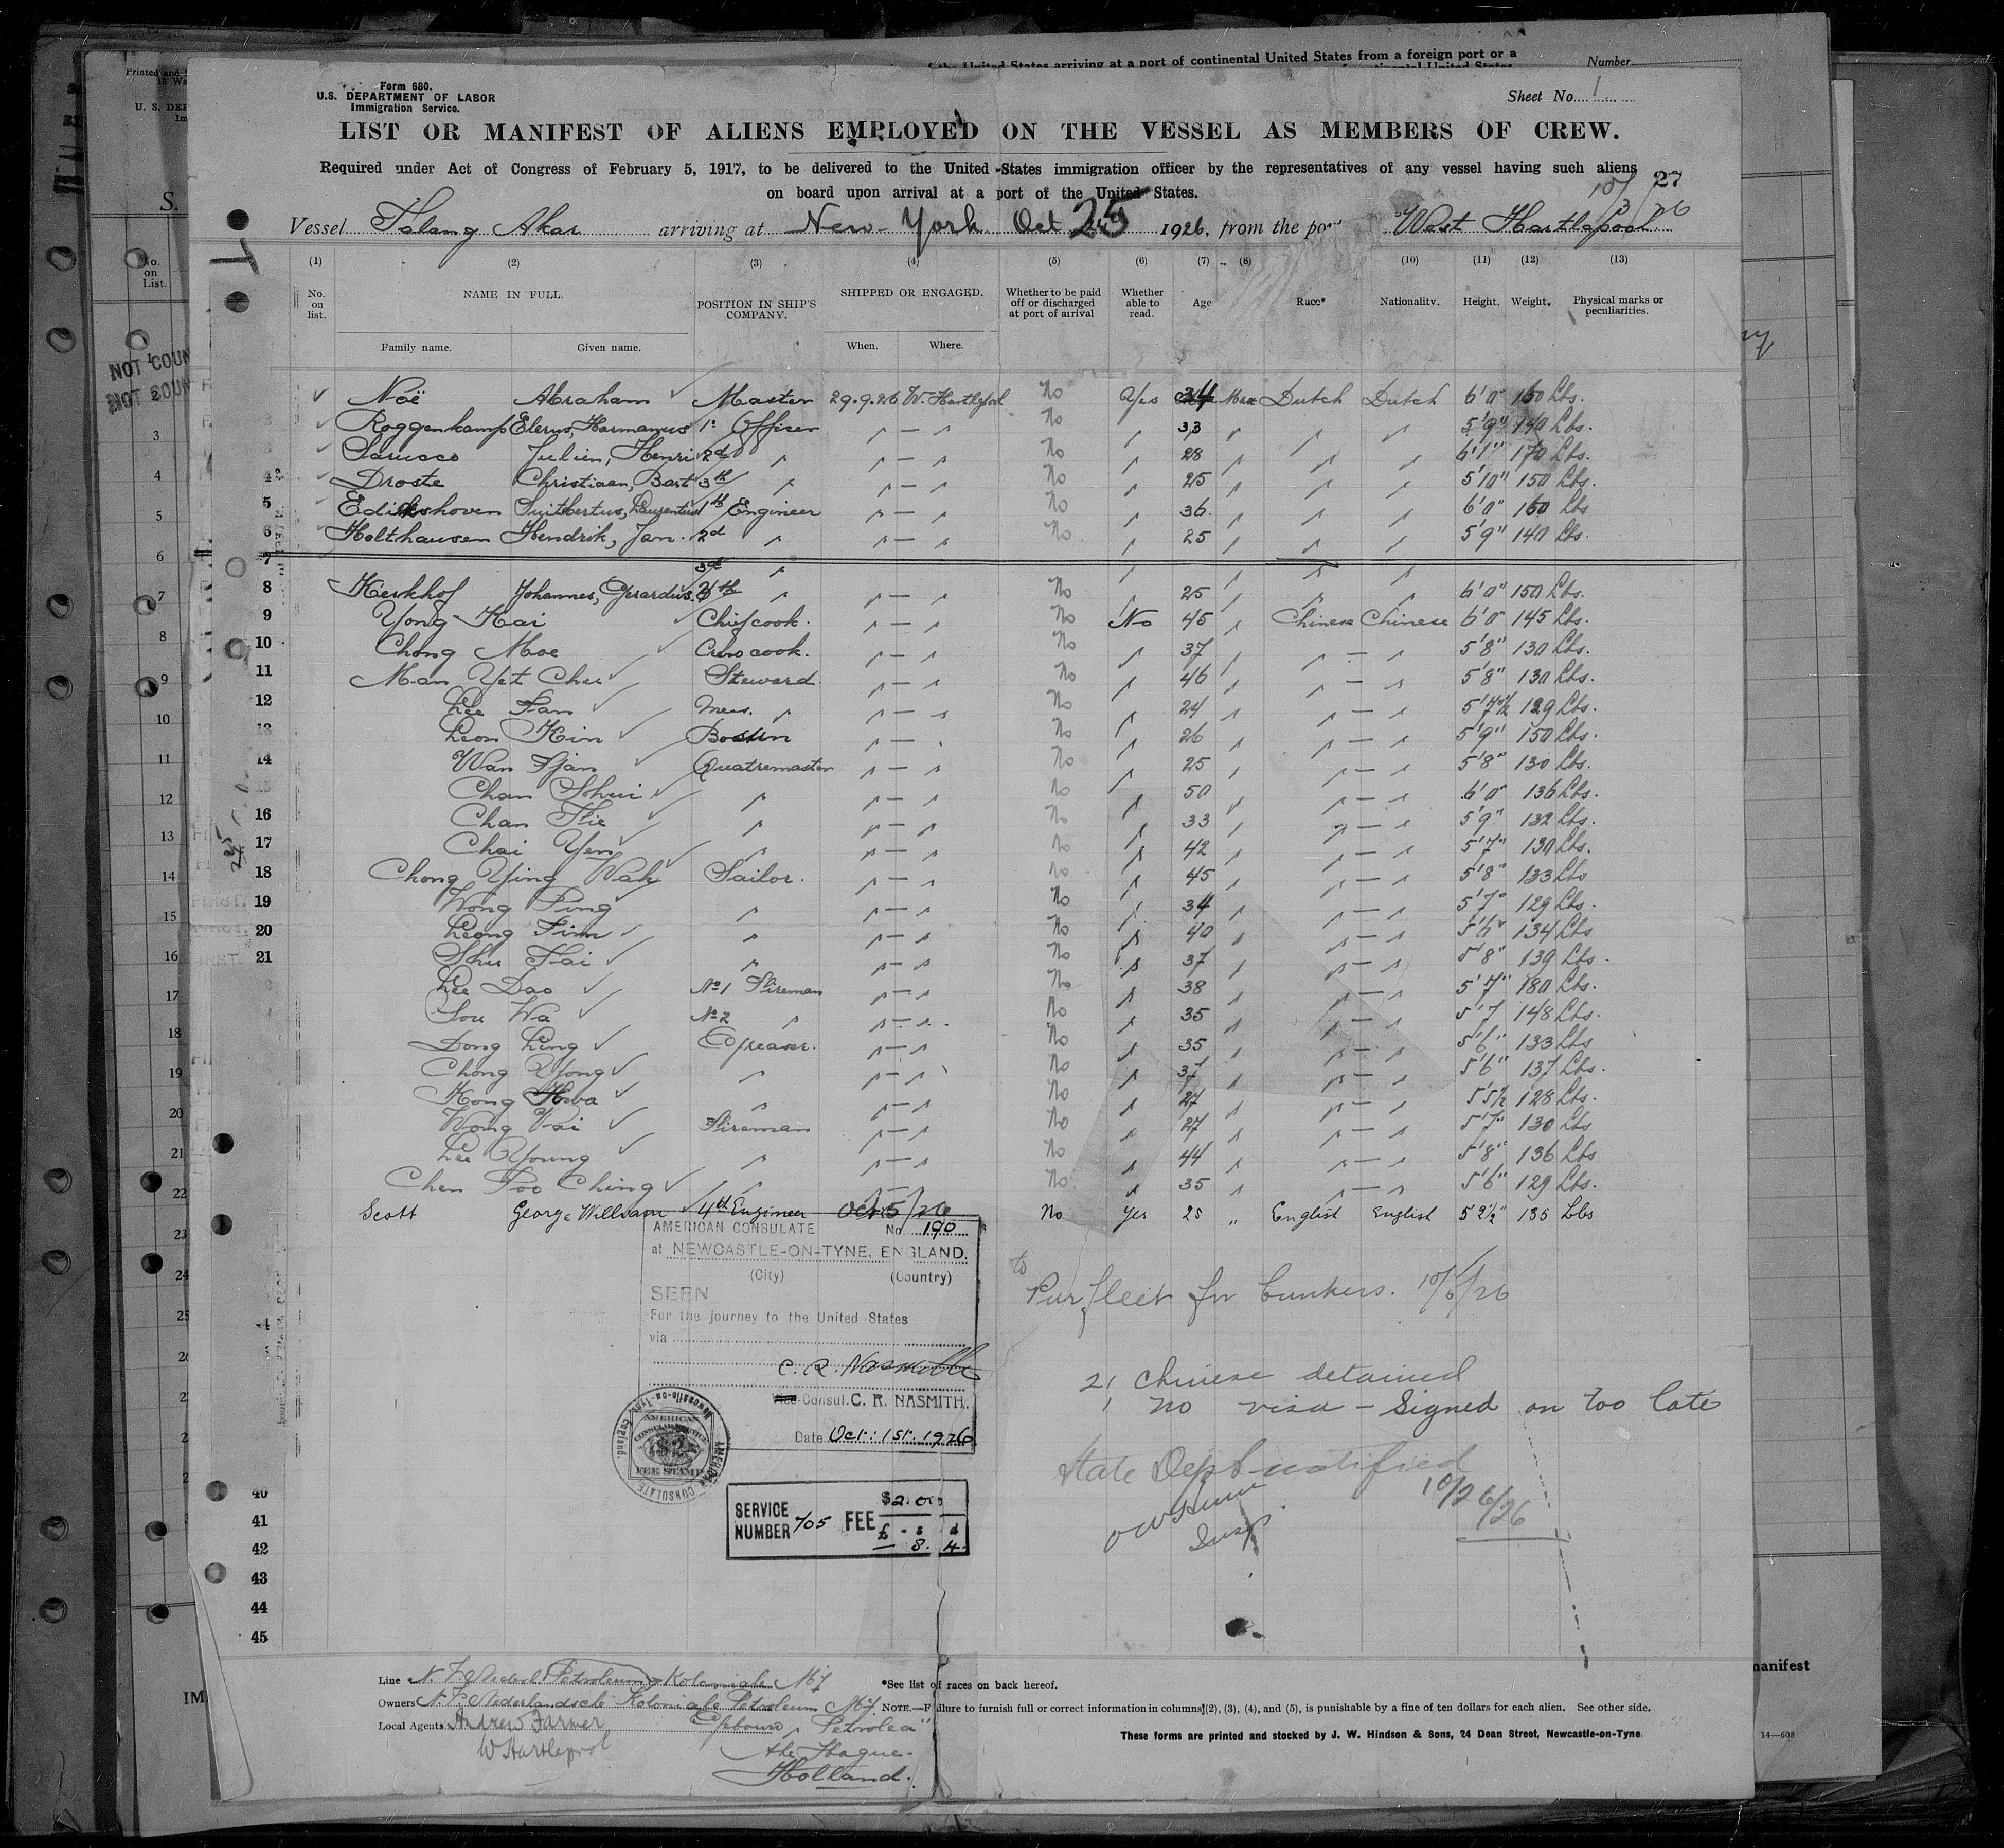 of the United States arriving at a port of continental United States from a foreign port or a
Number
Form 680.
U.S. DEPARTMENT OF LABOR
Immigration Service.
Sheet No. 1
LIST OR MANIFEST OF ALIENS EMPLOYED ON THE VESSEL AS MEMBERS OF CREW.
Required under Act of Congress of February 5, 1917, to be delivered to the United States immigration officer by the representatives of any vessel having such aliens
on board upon arrival at a port of the United States.
27
10/3/26
Vessel Talang Akar arriving at New-York Oct 25 1926, from the port West Hartlepool
(1) (2) (3) (4) (5) (6) (7) (8) (10) (11) (12) (13)
No. on list. NAME IN FULL. POSITION IN SHIP'S COMPANY. SHIPPED OR ENGAGED. Whether to be paid off or discharged at port of arrival Whether able to read. Age Race* Nationality. Height. Weight. Physical marks or peculiarities.
Family name. Given name. When. Where.
Noë Abraham Master 29.9.26 W. Hartlepool No Yes 34 Dutch Dutch 6'0" 160 Lbs.
Roggenkamp Elerus, Harmannus 1e Officer " — " No " 33 " " " 5'9" 140 Lbs.
Julien, Henri 2d " " — " No " 28 " " " 6'1" 170 Lbs.
4 Droste Christiaan, Bart 3th " " — " No " 25 " " " 5'10" 150 Lbs.
5 Suitbertus, Laurentius 1th Engineer " — " No " 36. " " " 6'0" 160 Lbs
6 Holthausen Hendrik, Jan. 2d " " — " No " 25 " " " 5'9" 140 Lbs.
7 3d " " " " "
8 Kerkhof Johannes, Gerardus. " " — " No 25 " " " 6'0" 150 Lbs.
9 Yong Kai Chief cook. " — " No No 45 " Chinese Chinese 6'0" 145 Lbs.
10 Chong Moe Crew cook. " — " No " 37 " " — " 5'8" 130 Lbs.
11 Man Yet Chu Steward. " — " No " 46 " " — " 5'8" 130 Lbs.
12 Lee San Mess. " " — " No " 24 " " — " 5'7 1/2 129 Lbs.
13 Leon Kin Bosun " — " No " 26 " " — " 5'9" 150 Lbs.
14 Wan Tjan Quatremaster " — " No " 25 " " — " 5'8" 130 Lbs.
15 Chan Sohui " " — " No " 50 " " — " 6'0" 136 Lbs.
16 Chan Tlie " " — " No " 33 " " — " 5'9" 132 Lbs.
17 Chai Yen " " — " No " 42 " " — " 5'7" 130 Lbs.
18 Chong Ying Wah Sailor. " — " No " 45 " " — " 5'8" 133 Lbs
19 Wong Ping " " — " No " 34 " " — " 5'7" 129 Lbs.
20 Leong Fim " " — " No " 40 " " — " 134 Lbs
21 Shu Tai " " — " No " 37 " " — " 5'8" 139 Lbs.
Lee Dao No 1 Fireman " — " No " 38 " " — " 5'7" 180 Lbs.
Sou Wa No 2 " " — " No " 35 " " — " 5'7 148 Lbs.
Dong Ling Greaser. " — " No " 35 " " — " 5'6" 133 Lbs
Chong Yong " " — " No " 37 " " — " 5'6" 137 Lbs.
Kong Hwa " " — " No " 27 " " — " 5'5 1/2 128 Lbs.
Wong Wai Fireman " — " No " 27 " " — " 5'7" 130 Lbs
Lee Young " " — " No " 44 " " — " 5'8" 136 Lbs
Chen Foo Ching " " — " No " 35 " " — " 5'6" 129 Lbs.
Scott George William 4th Engineer Oct 5/26 No Yes 25 " English English 5 2½" 135 Lbs
AMERICAN CONSULATE No. 190
at NEWCASTLE-ON-TYNE, ENGLAND.
(City) (Country)
SEEN
For the journey to the United States
via
C. R. Nasmith
Vice Consul. C. R. NASMITH.
Date Oct: 1st. 1926
to
Purfleet for bunkers. 10/6/26
21 Chinese detained
no visa - Signed on too late
State Dept notified
10/26/26
Insp.
AMERICAN
FEE STAMP
AMERICAN CONSULATE
Newcastle-on-Tyne, England.
SERVICE NUMBER 705 FEE $2.00
£ - s d
— 8. 4.
40
41
42
43
44
45
Line N.V. Nederl. Petroleum Koloniale Mij
Owners N.V. Nederlandsche Koloniale Petroleum Mij.
Local Agents Andrew Farmer Gebouw "Petrolea"
W Hartlepool the Hague.
Holland.
*See list of races on back hereof.
NOTE.—Failure to furnish full or correct information in columns (2), (3), (4), and (5), is punishable by a fine of ten dollars for each alien. See other side.
These forms are printed and stocked by J. W. Hindson & Sons, 24 Dean Street, Newcastle-on-Tyne
manifest
14—608